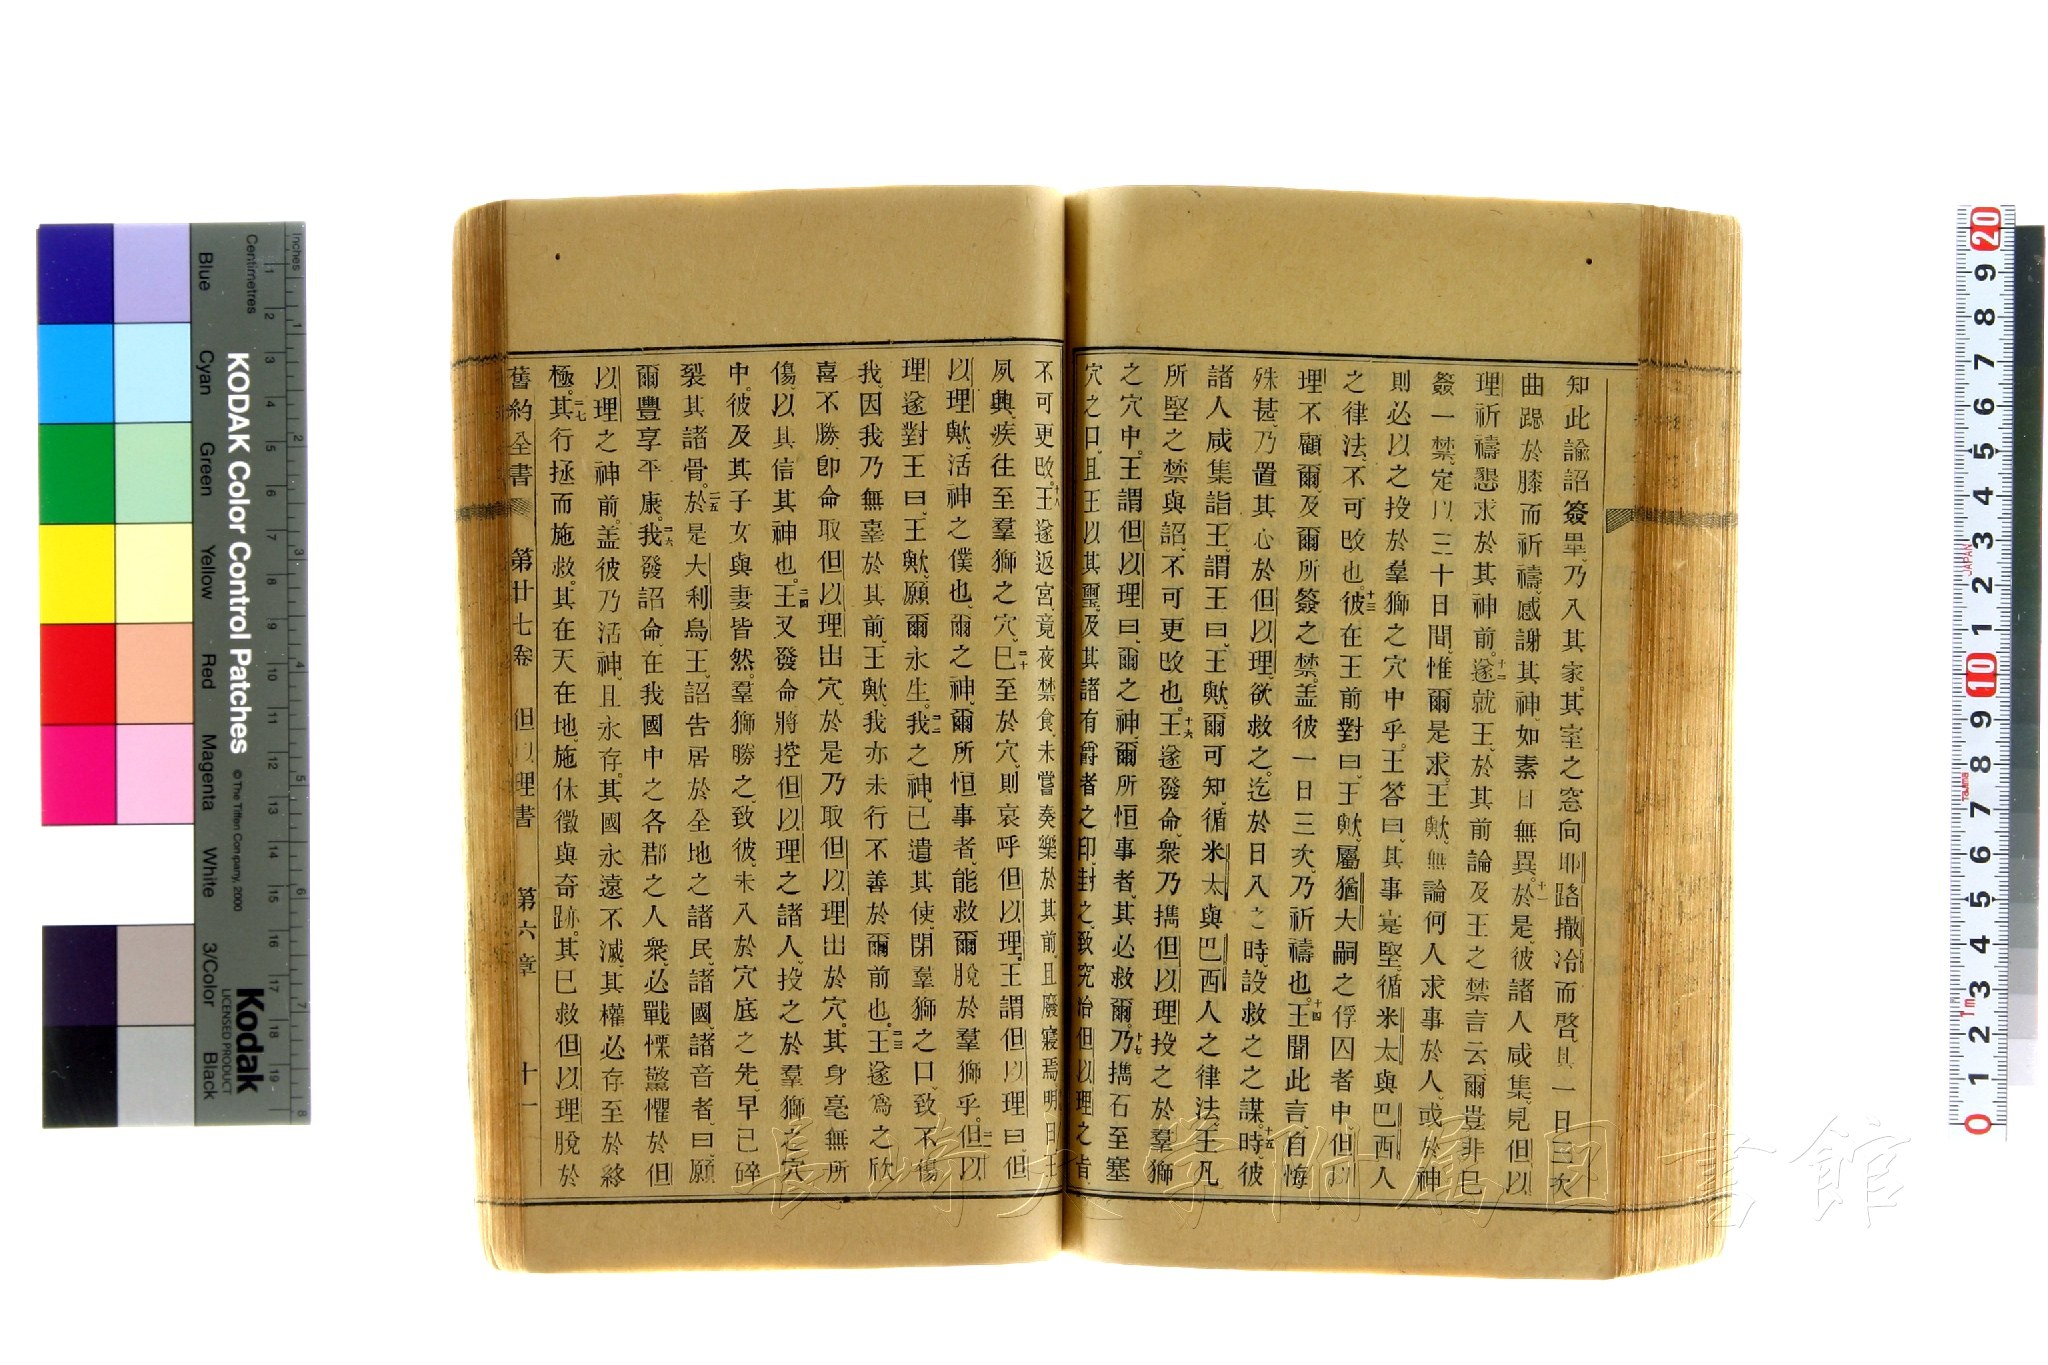 知此諭詔簽畢、乃入其家。其室之窓向耶路撒冷而啓、其一日三次
曲跽於膝而祈禱、感謝其神、如素日無異。十一於是、彼諸人咸集、見但以
理祈禱懇求於其神前。十二遂就王、於其前論及王之禁言云、爾豈非已
簽一禁、定以三十日間、惟爾是求、王歟、無論何人求事於人、或於神
則必以之投於羣獅之穴中乎。王答曰、其事寔堅、循米太與巴西人
之律法、不可改也。十三彼在王前對曰、王歟、屬猶大嗣之俘囚者中、但以
理不顧爾、及爾所簽之禁。盖彼一日三次、乃祈禱也。十四王聞此言、自悔
殊甚、乃置其心於但以理、欲救之。迄於日入之時、設救之之謀。十五時、彼
諸人咸集詣王、謂王曰、王歟、爾可知、循米太與巴西人之律法、王凡
所堅之禁與詔、不可更改也。十六王遂發命、衆乃擕但以理投之於羣獅
之穴中。王謂但以理曰、爾之神、爾所恒事者、其必救爾。十七乃擕石至塞
穴之口、且王以其璽、及其諸有爵者之印、封之、致究治但以理之旨
不可更改。十八王遂返宮、竟夜禁食、未嘗奏樂於其前、且廢寢焉、明日王
夙興、疾往至羣獅之穴。二十已至於穴、則哀呼但以理、王謂但以理曰、但
以理歟、活神之僕也、爾之神、爾所恒事者、能救爾脫於羣獅乎。二一但以
理遂對王曰、王歟、願爾永生。二二我之神已遣其使、閉羣獅之口、致不傷
我、因我乃無辜於其前、王歟、我亦未行不善於爾前也。二三王遂爲之欣
喜不勝、卽命取但以理出穴、於是乃取但以理出於穴。其身毫無所
傷、以其信其神也。二四王又發命將控但以理之諸人、投之於羣獅之穴
中。彼及其子女與妻皆然。羣獅勝之、致彼未入於穴底之先、早已碎
裂其諸骨。二五於是大利烏王、詔告居於全地之諸民、諸國、諸音者、曰、願
爾豐享平康。二六我發詔命、在我國中之各郡之人衆、必戰慄驚懼於但
以理之神前。盖彼乃活神、且永存。其國永遠不滅、其權必存至於終
極。二七其行拯而施救。其在天在地、施休徵與奇跡。其已救但以理脫於
舊約全書 第廿七卷 但以理書 第六章 十一
KODAK Color Control Patches
© The Tiffen Company, 2000
Kodak
LICENSED PRODUCT
Inches
Centimetres
Blue
Cyan
Green
Yellow
Red
Magenta
White
3/Color
Black
長崎大学附属図書館